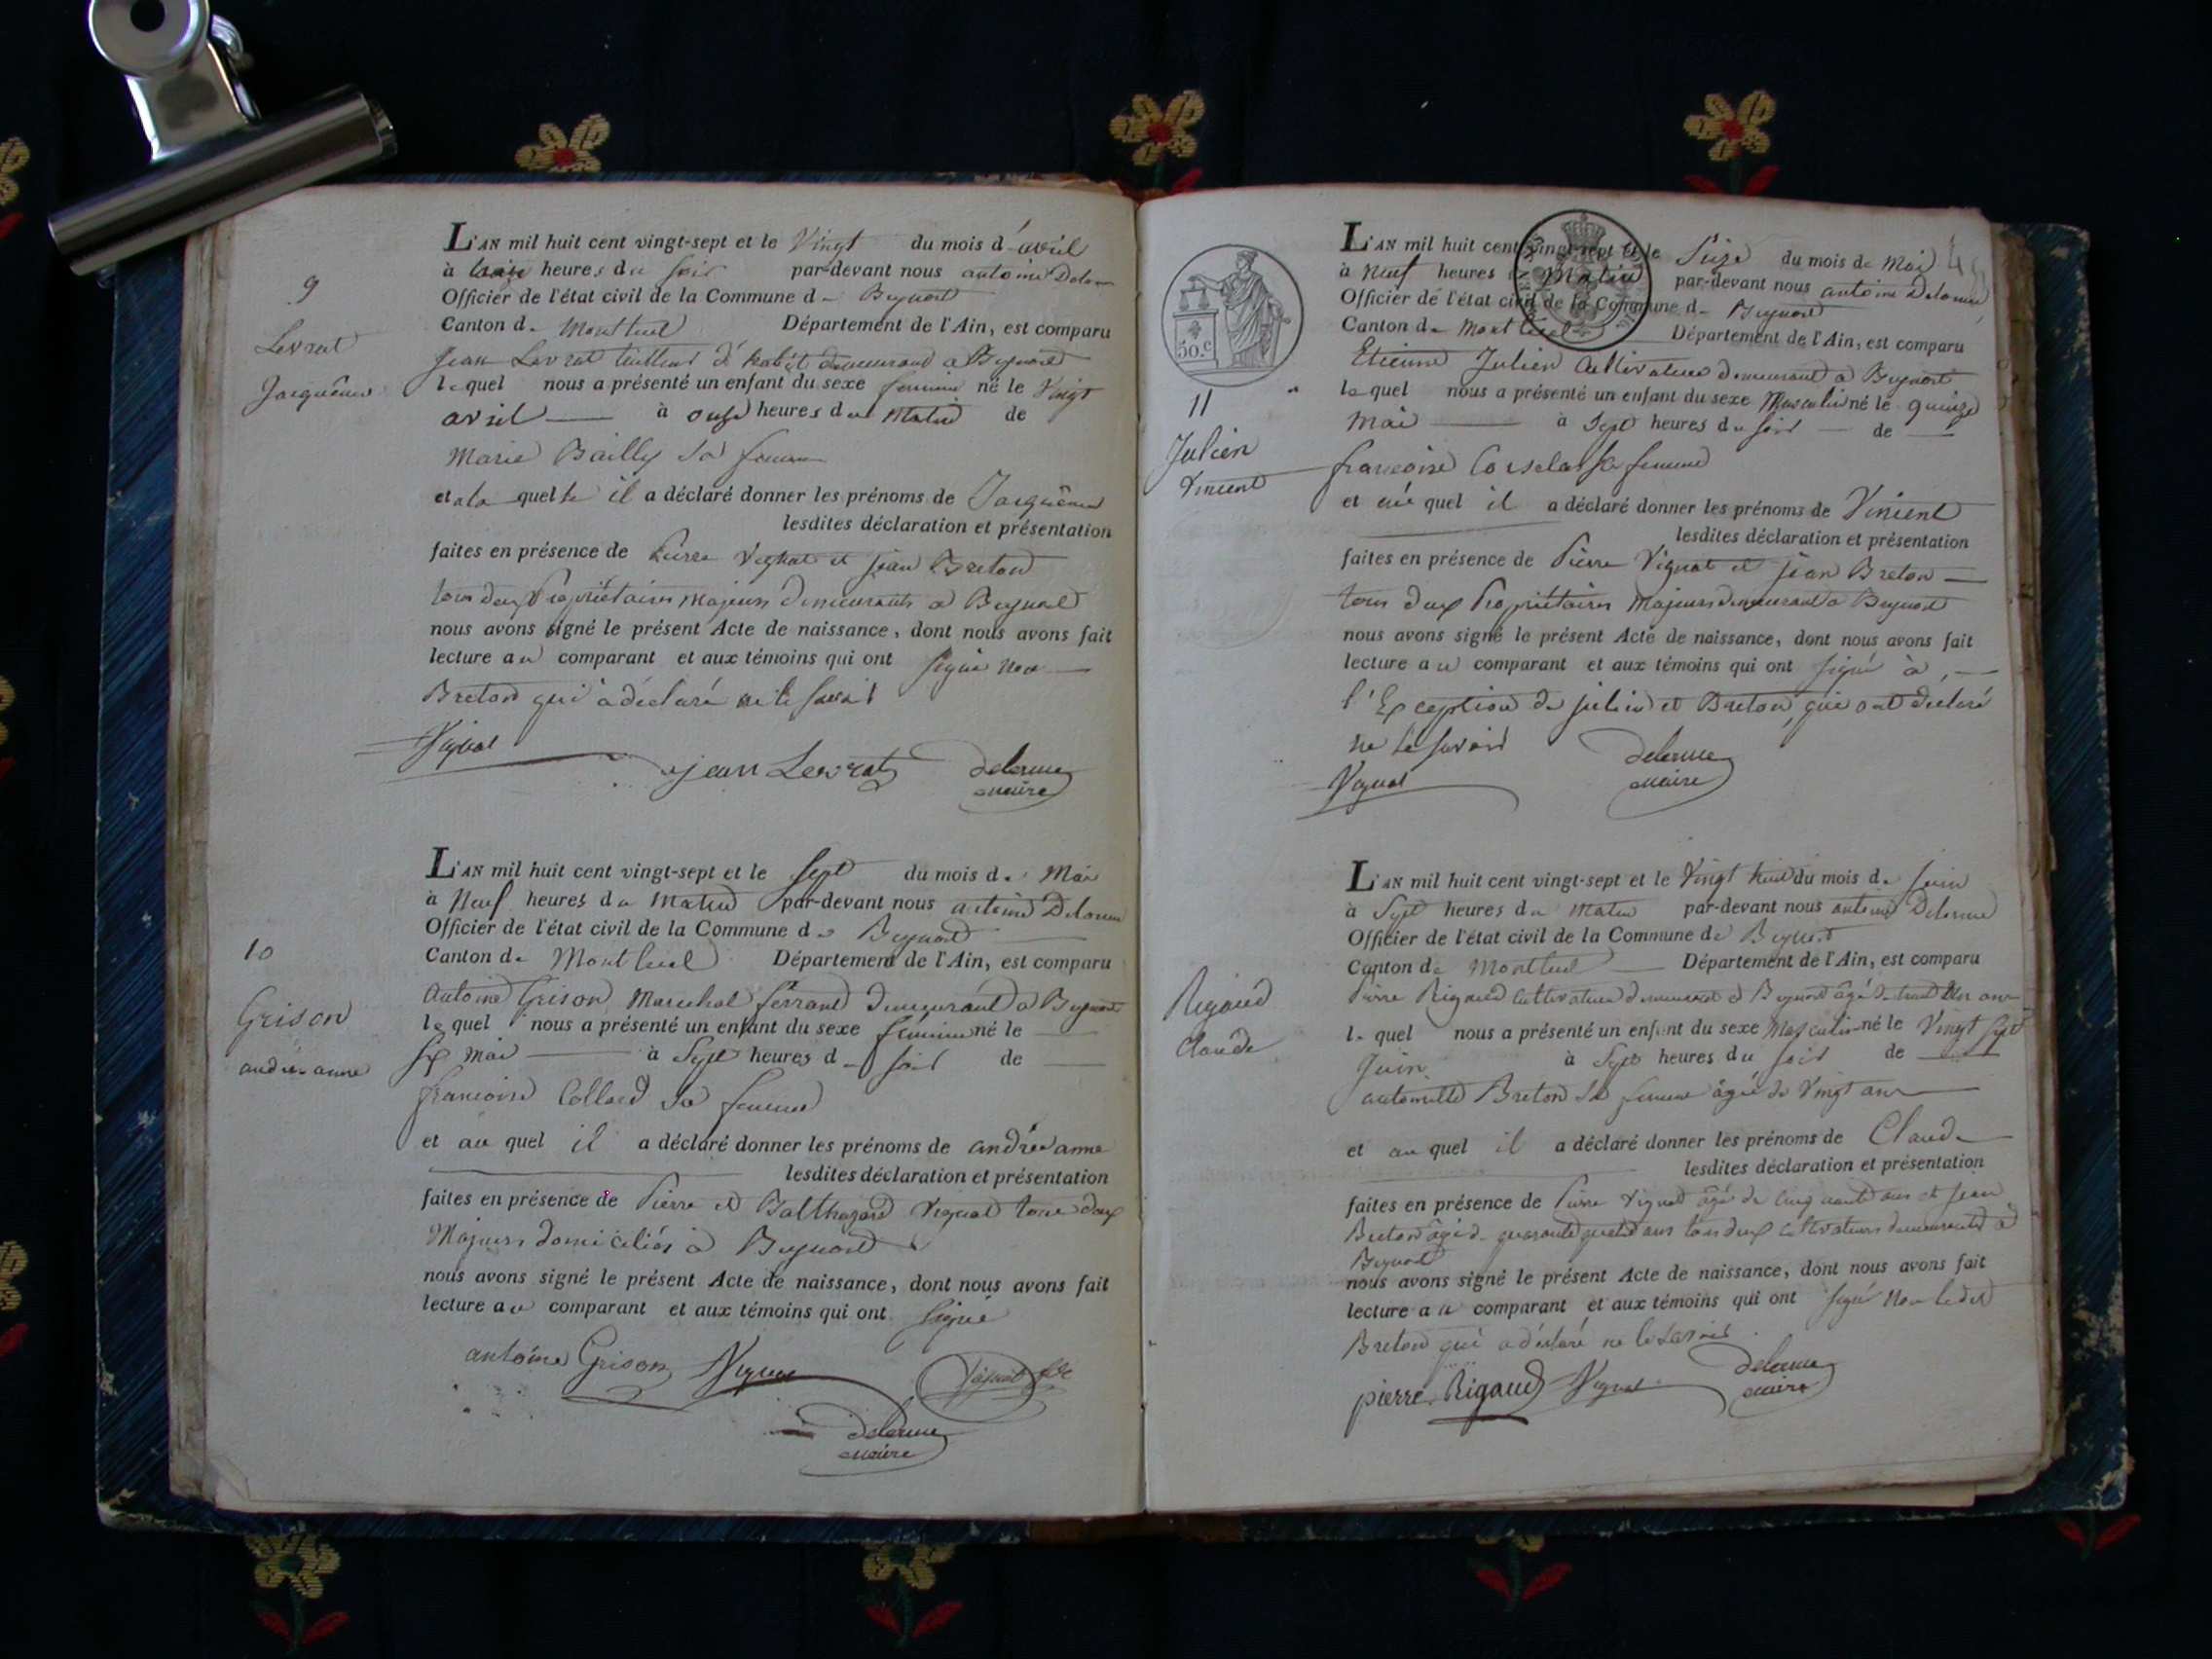 9
Levrat
Jacquême
L'AN mil huit cent vingt-sept et le Vingt du mois d'avril
à trois heures du soir par-devant nous antoine Delorme
Officier de l'état civil de la Commune de Beynost
Canton de Montluel Département de l'Ain, est comparu
Jean Levrat tailleur d'habit demeurant a Beynost
lequel nous a présenté un enfant du sexe feminin né le Vingt
avril à onze heures du matin de
Marie Bailly sa femme
et a la quelle il a déclaré donner les prénoms de Jacquême
lesdites déclaration et présentation
faites en présence de Pierre Vignat et jean Breton
tous deux Propriétaires Majeurs demeurants a Beynost
nous avons signé le présent Acte de naissance, dont nous avons fait
lecture au comparant et aux témoins qui ont signé non
Breton qui a déclaré ne le savoir
Vignat
jean Levrat
delorme
maire
10
Grison
andrée anne
L'AN mil huit cent vingt-sept et le sept du mois de Mai
à Neuf heures du Matin par-devant nous antoine Delorme
Officier de l'état civil de la Commune de Beynost
Canton de Montluel Département de l'Ain, est comparu
Antoine Grison Marechal ferrant demeurant a Beynost
lequel nous a présenté un enfant du sexe féminin né le
six mai à Sept heures du soir de
francoise Collard sa femme
et au quel il a déclaré donner les prénoms de andrée anne
lesdites déclaration et présentation
faites en présence de Pierre et Balthazard Vignat tous deux
Majeurs domiciliés à Beynost
nous avons signé le présent Acte de naissance, dont nous avons fait
lecture au comparant et aux témoins qui ont signé
antoine Grison Vignat Vignat
delorme
maire
50.c
11
Julien
Vincent
L'AN mil huit cent vingt-sept et le Seize du mois de Mai
à Neuf heures du Matin par-devant nous antoine Delorme
Officier de l'état civil de la Commune de Beynost
Canton de Montluel Département de l'Ain, est comparu
Etienne Julien Cultivateur demeurant a Beynost
lequel nous a présenté un enfant du sexe Masculin né le quinze
Mai à Sept heures du soir de
francoise sa femme
et au quel il a déclaré donner les prénoms de Vincent
lesdites déclaration et présentation
faites en présence de Pierre Vignat et jean Breton
tous deux Propriétaires Majeurs demeurant a Beynost
nous avons signé le présent Acte de naissance, dont nous avons fait
lecture au comparant et aux témoins qui ont signé à
l'Exception de julien et Breton, qui ont déclaré
ne le savoir
Vignat
delorme
maire
Rigaud
Claude
L'AN mil huit cent vingt-sept et le Vingt huit du mois de Juin
à Sept heures du Matin par-devant nous antoine Delorme
Officier de l'état civil de la Commune de Beynost
Canton de Montluel Département de l'Ain, est comparu
Pierre Rigaud Cultivateur demeurant a Beynost âgé de trente ans
lequel nous a présenté un enfant du sexe Masculin né le Vingt sept
Juin à Sept heures du soir de
antoinette Breton sa femme âgée de Vingt ans
et au quel il a déclaré donner les prénoms de Claude
lesdites déclaration et présentation
faites en présence de Pierre Vignat âgé de Cinquante ans et Jean
Breton âgé de quarante quatre ans tous deux cultivateurs demeurants à
Beynost
nous avons signé le présent Acte de naissance, dont nous avons fait
lecture au comparant et aux témoins qui ont signé non ledit
Breton qui a déclaré ne le savoir
pierre Rigaud Vignat
delorme
maire